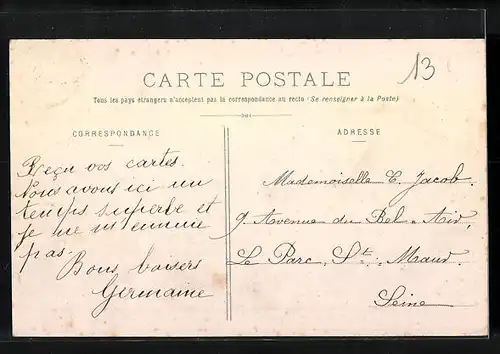 13
CARTE POSTALE
Tous les pays étrangers n'acceptent pas la correspondance au recto (Se renseigner à la Poste)
CORRESPONDANCE
Reçu vos cartes.
Nous avons ici un
temps superbe et
je ne m'ennuie
pas.
Bons baisers
Germaine
ADRESSE
Mademoiselle E. Jacob.
9. Avenue du Bel-Air,
Le Parc St-Maur.
Seine